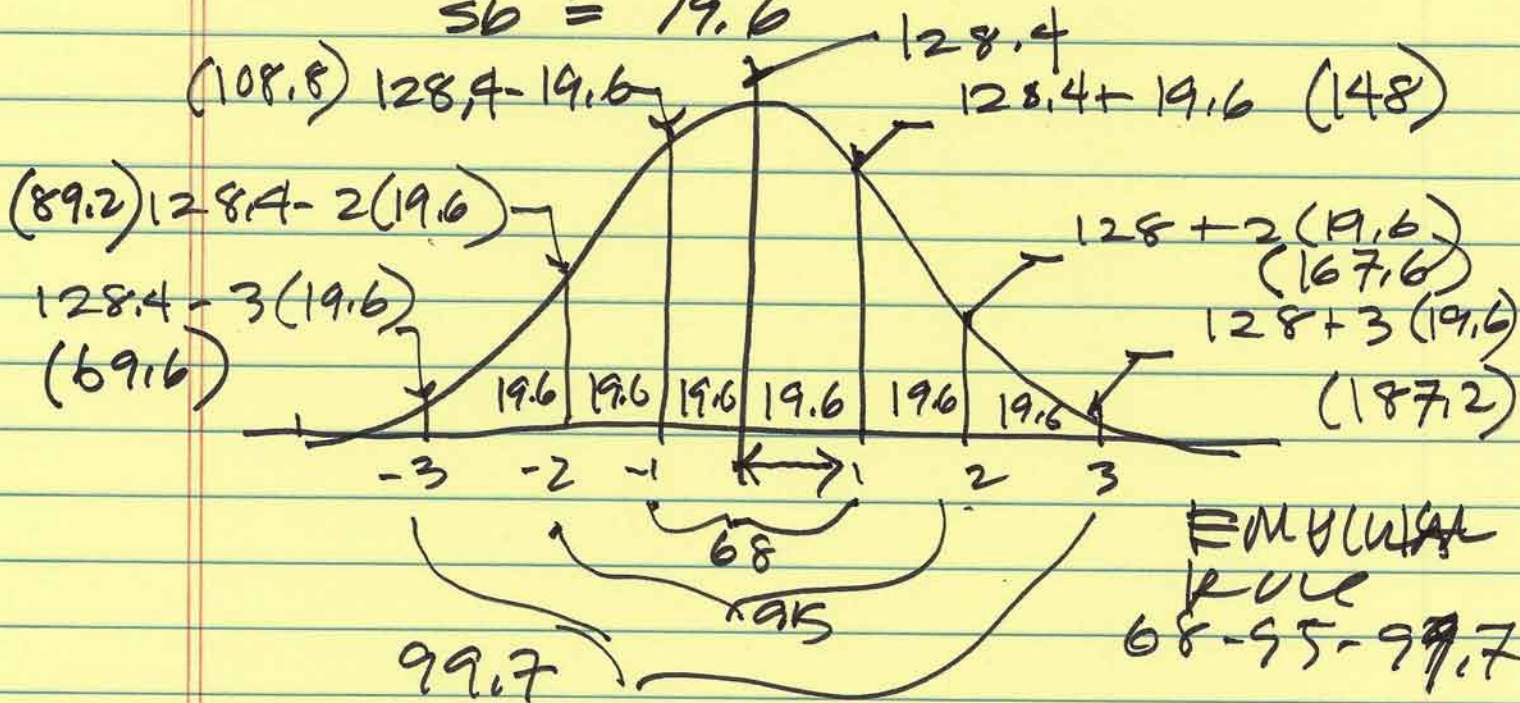 SD = 19.6
128.4
(108.8) 128.4 - 19.6
128.4 + 19.6 (148)
(89.2) 128.4 - 2(19.6)
128 + 2(19.6)
(167.6)
128.4 - 3(19.6)
(69.6)
128 + 3(19.6)
(187.2)
19.6 19.6 19.6 19.6 19.6 19.6
-3 -2 -1 1 2 3
68
95
99.7
RULE
68-95-99.7